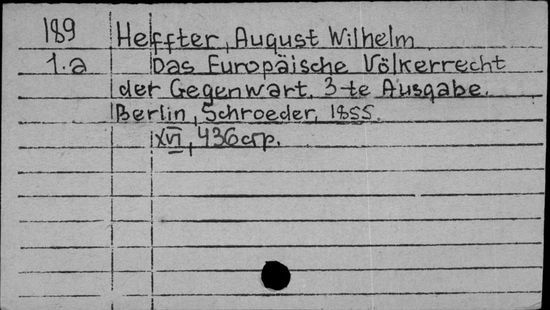 189 Heffter, August Wilhelm
1.a Das Europäische Völkerrecht
der Gegenwart. 3-te Ausgabe.
Berlin, Schroeder, 1855.
XVI, 436 стр.